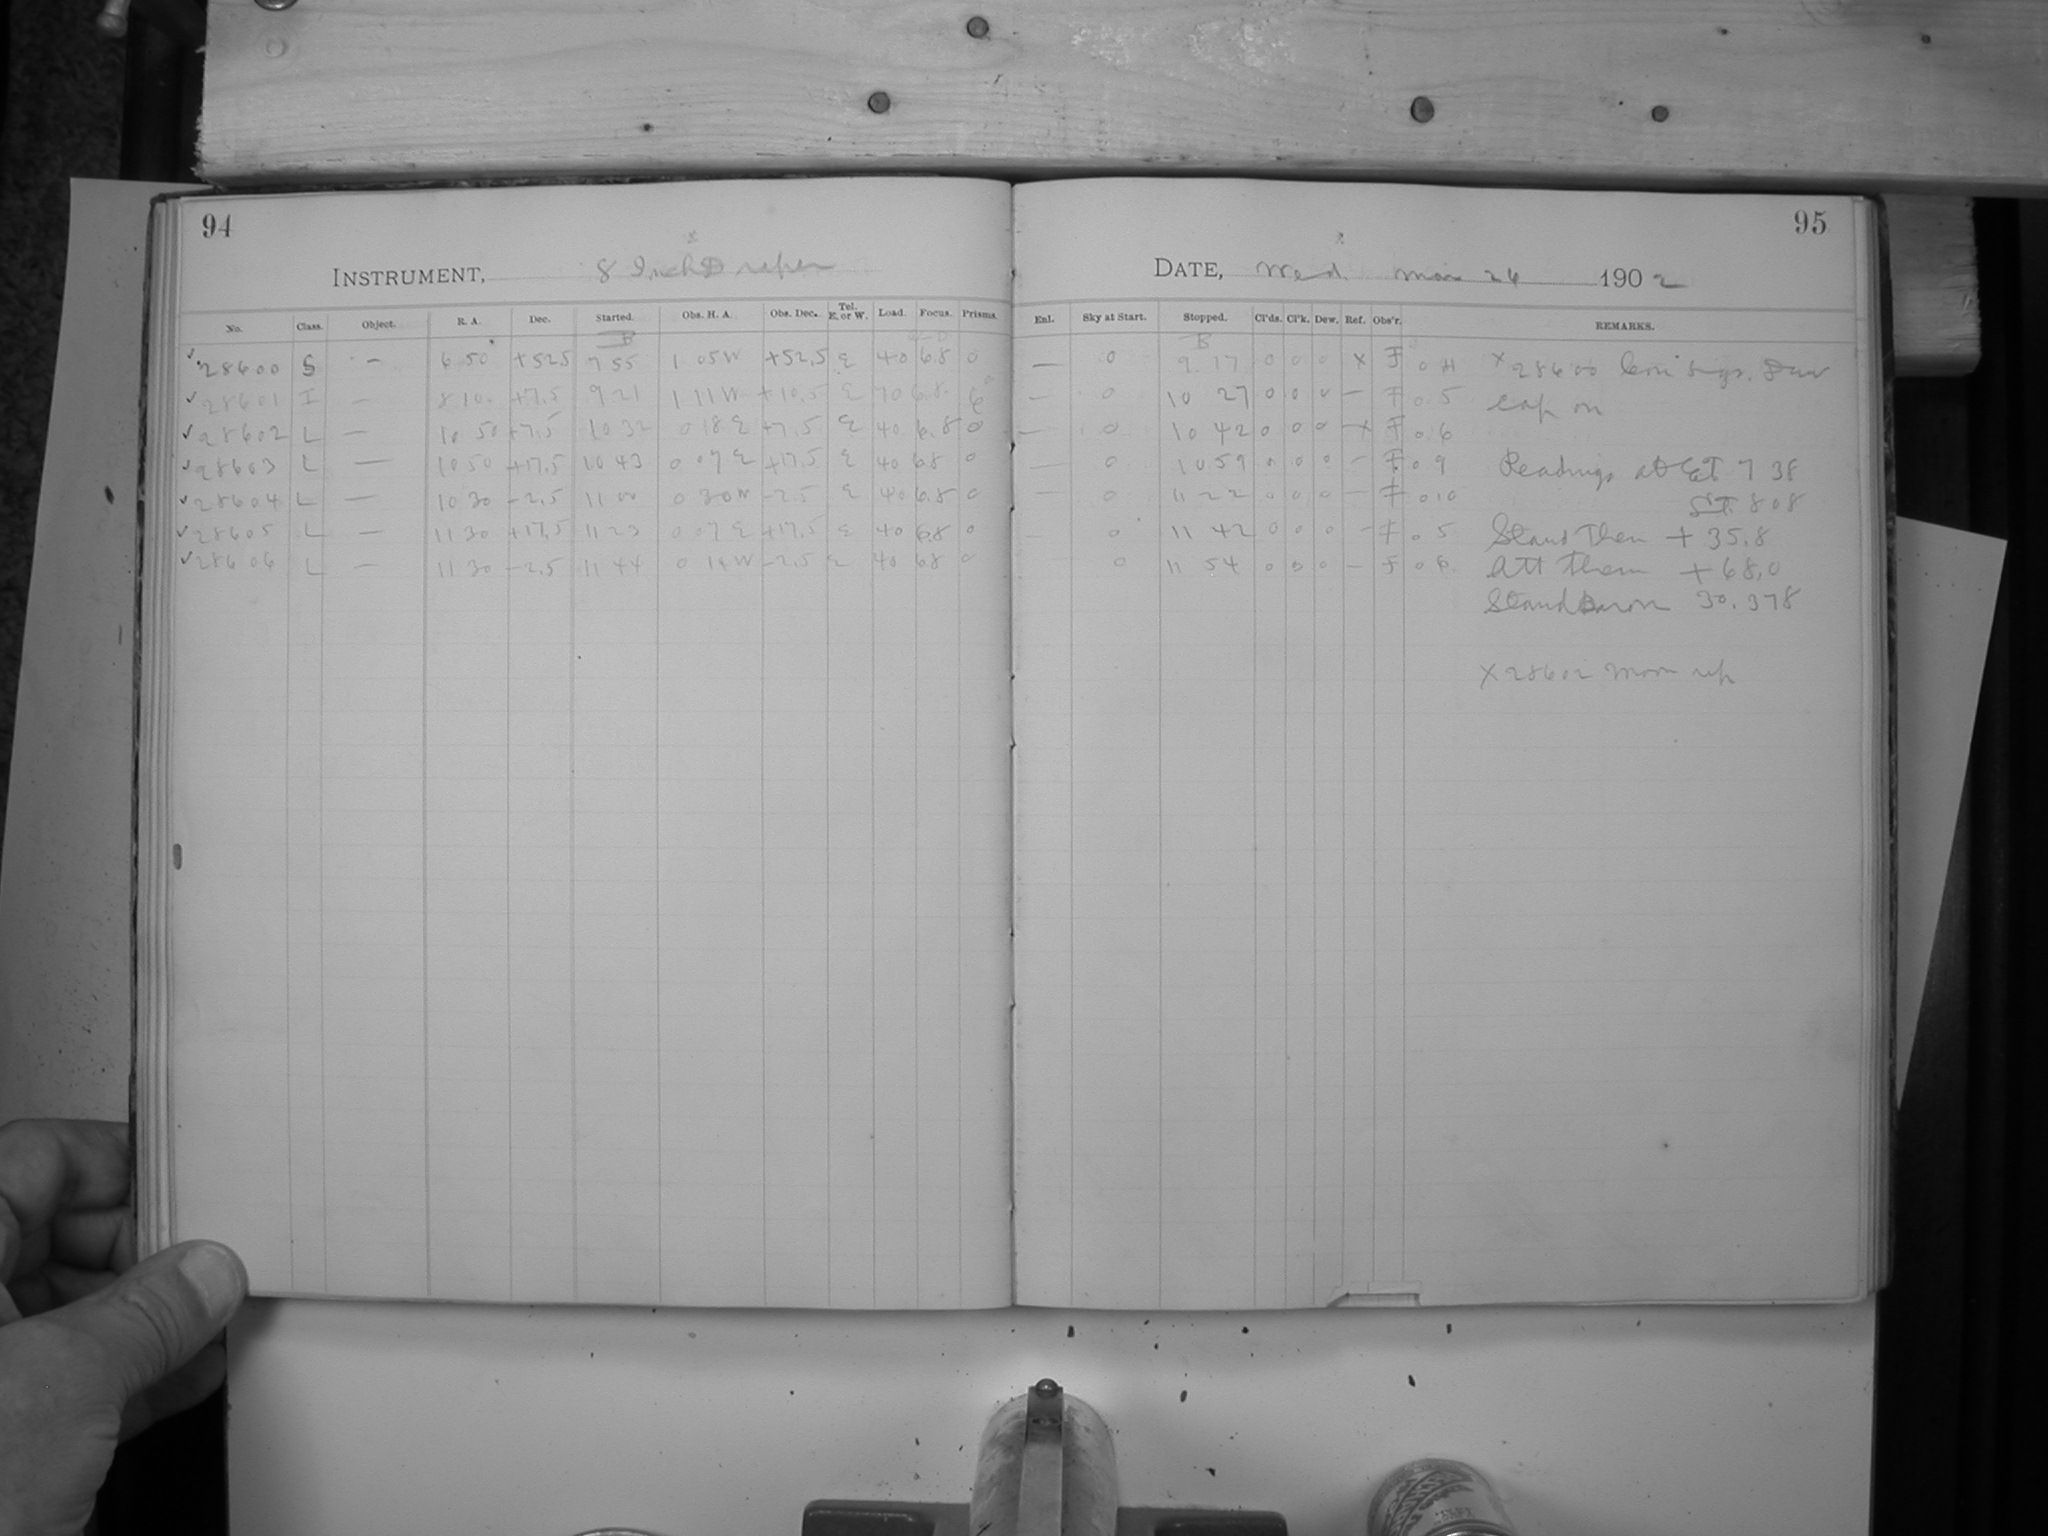 94
INSTRUMENT, 8 Inch Draper
No. Class. Object. R. A. Dec. Started. Obs. H. A. Obs. Dec. Tel. E. or W. Load. Focus. Prisms.
28600 S — 6 50 +52.5 7 55 1 05 W +52.5 E 40 6.8 0
28601 I — 8 10 +7.5 9 21 1 11 W +10.5 E 70 6.8
28602 L — 10 50 +7.5 10 32 0 18 E +7.5 E 40 6.8 0
28603 L — 10 50 +17.5 10 43 0 07 E +17.5 E 40 6.8 0
28604 L — 10 30 -2.5 11 00 0 30 W -2.5 E 40 6.8 0
28605 L — 11 30 +17.5 11 23 0 07 E +17.5 E 40 6.8 0
28606 L — 11 30 -2.5 11 44 0 14 W -2.5 E 40 6.8 0
95
DATE, Wed. Mar 26 1902
Enl. Sky at Start. Stopped. Cl'ds. Cl'k. Dew. Ref. Obs'r. REMARKS.
— 0 9 17 0 0 0 x F x 28600
— 0 10 27 0 0 0 — F 0.5 cap on
— 0 10 42 0 0 0 -x F 0.6
— 0 10 59 0 0 0 — F 0 9 Readings at ET 7 38
— 0 11 22 0 0 0 — F 0 10 ST. 8 08
— 0 11 42 0 0 0 — F 0 5 Stand Them + 35.8
0 11 54 0 0 0 — F Att Them + 68.0
Stand Barom 30.378
x 28602 Moon up